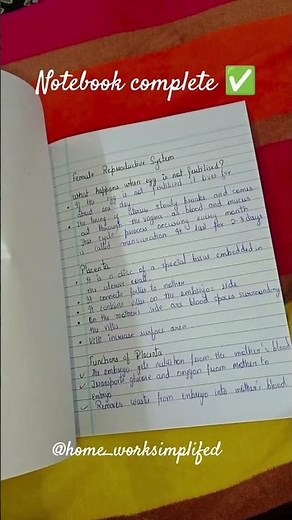 Notebook complete ✅
Female Reproductive System
What happens when egg is not fertilised?
• If the egg is not fertilised it lives for
about one day
• The lining of uterus slowly breaks and comes
out through the vagina as blood and mucus
This cycle process occuring every month
is called menstruation. It last for 2-8 days
Placenta
• It is a disc of a special tissue embedded in
the uterus wall
• It connects foetus to mother
• It contains villi on the embryo's side
• On the mother's side are blood spaces surrounding
the villi
• Villi increase surface area
Functions of Placenta
✓ The embryo gets nutrition from the mother's blood
✓ Transports glucose and oxygen from mother to
embryo
✓ Removes waste from embryo into mother's blood
@home_worksimplifed